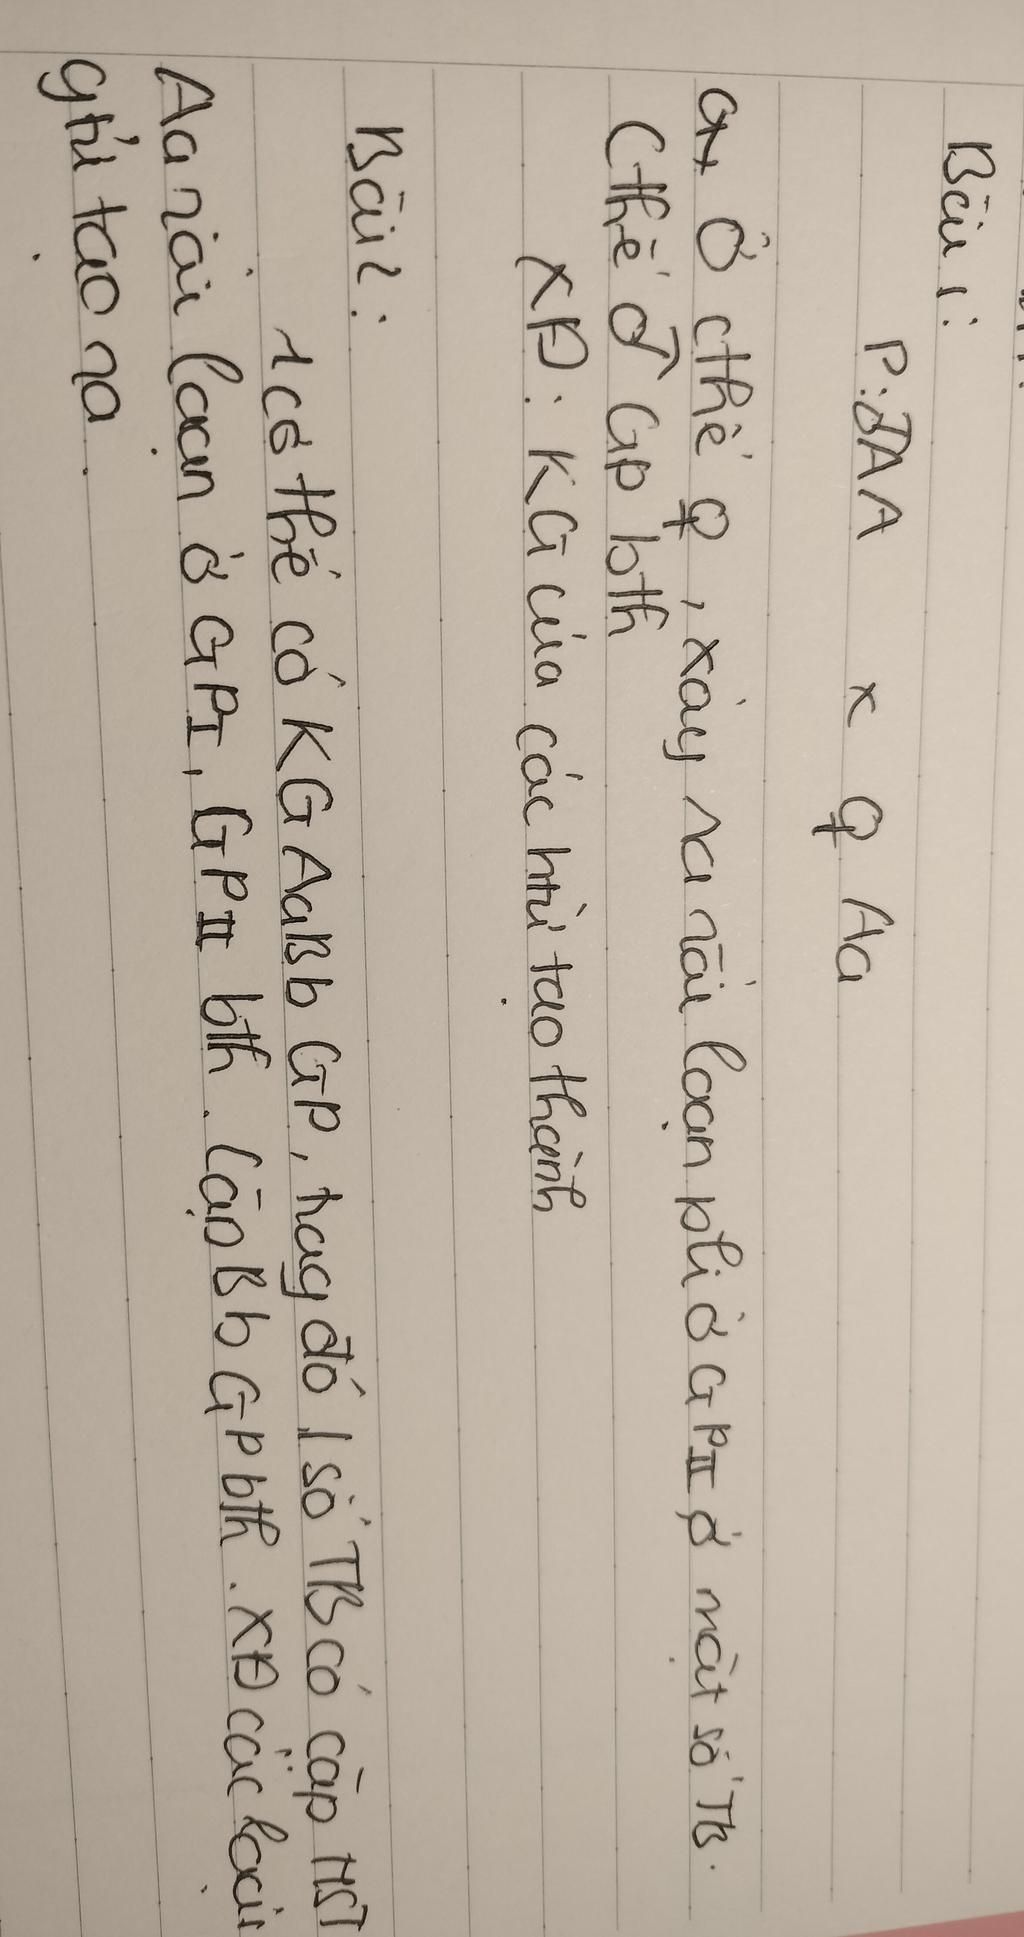 Bài 1:
P: ♂AA x ♀ Aa
a, Ở cthể ♀, xảy ra rối loạn pli ở GPII ở một số TB.
Cthể ♂ GP bth
XĐ: KG của các htử tạo thành
Bài 2:
1 cơ thể có KG AaBb GP, trong đó 1 số TB có cặp NST
Aa rối loạn ở GPI, GPII bth. Cặp Bb GP bth. XĐ các loại
gtử tạo ra.